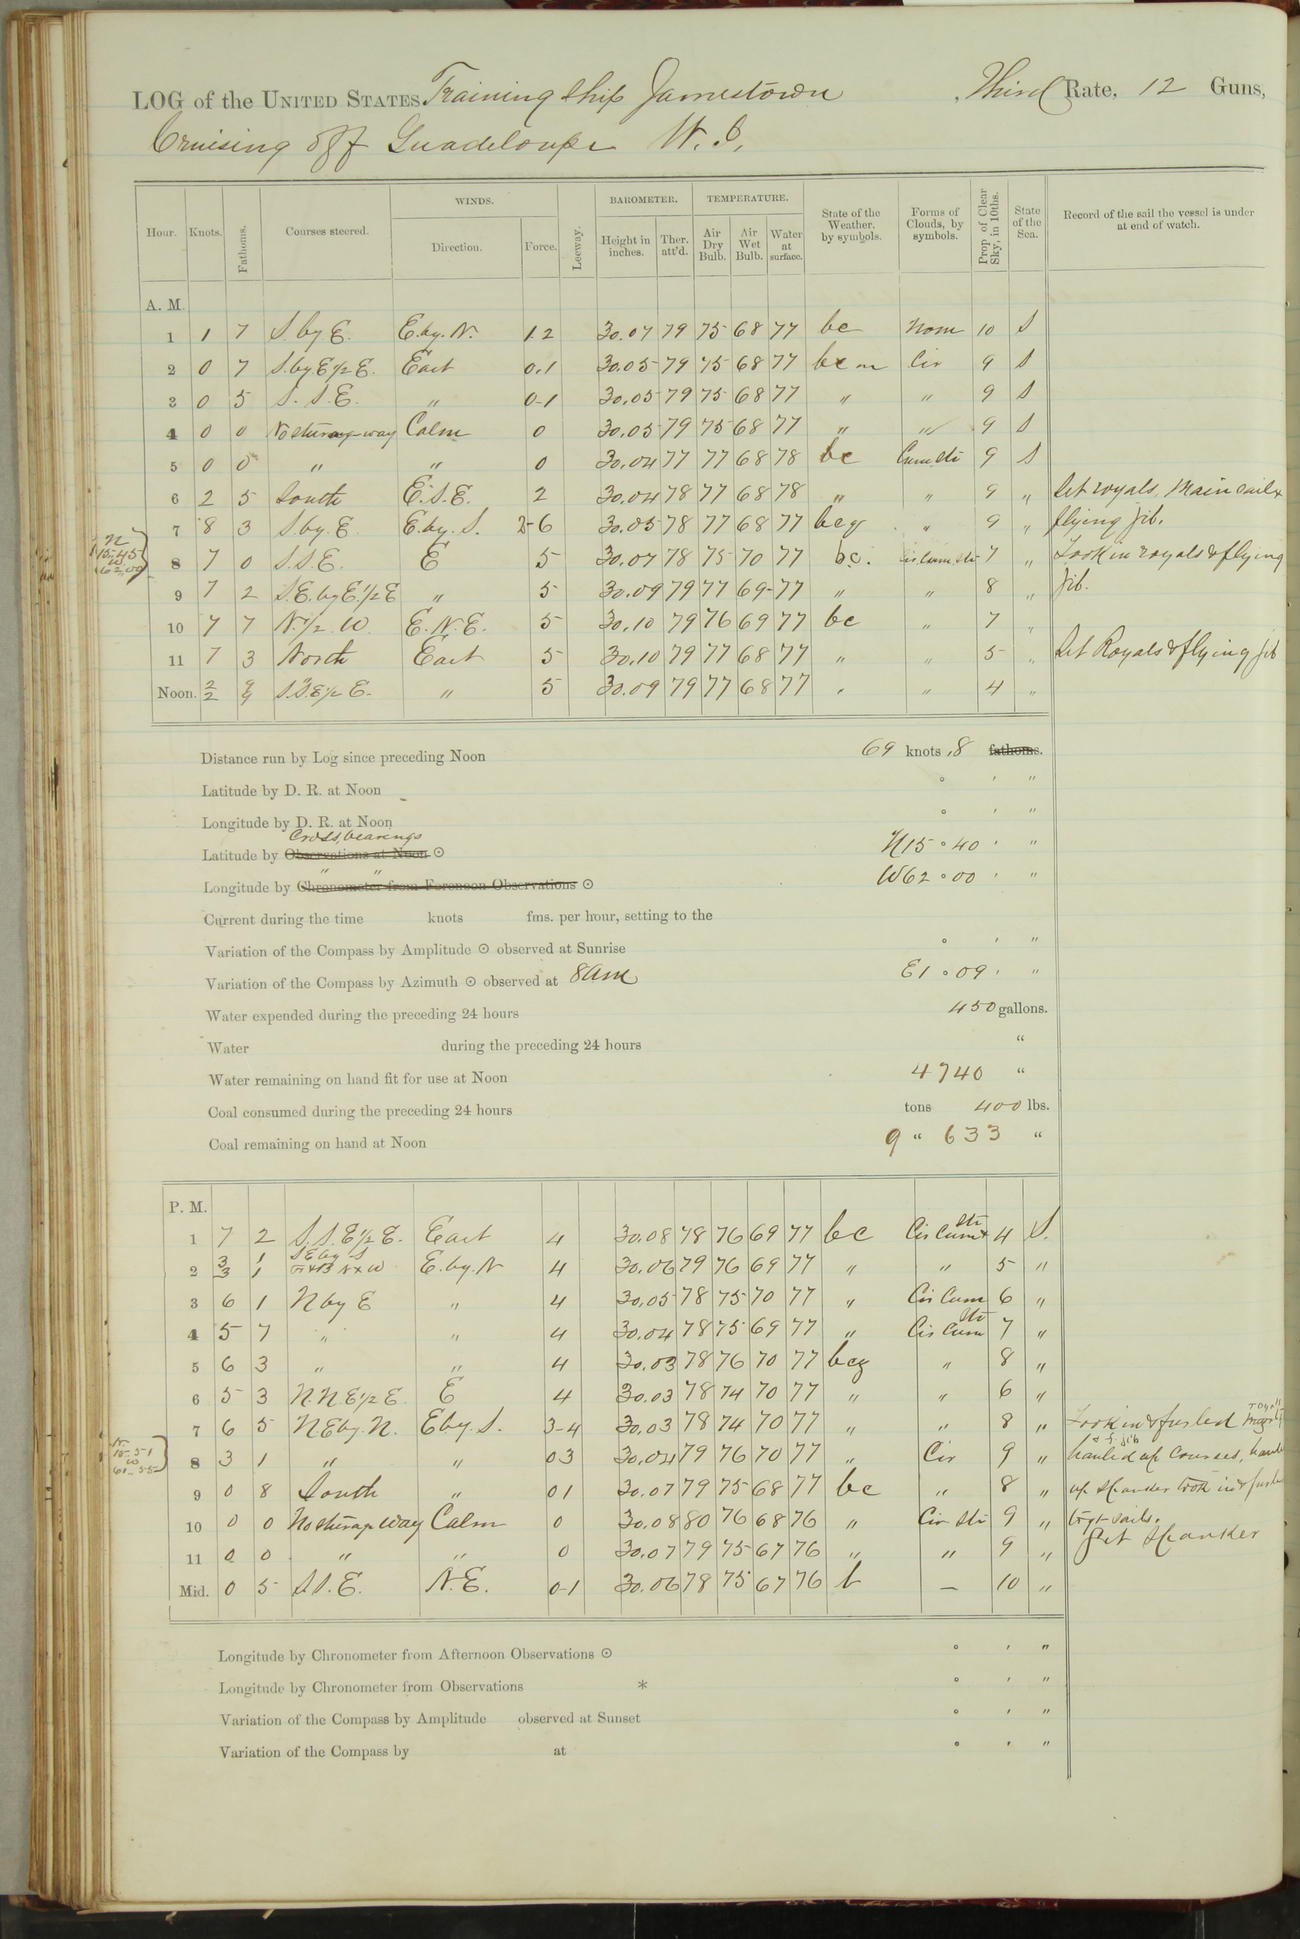 LOG of the UNITED STATES Training Ship Jamestown, Third Rate, 12 Guns,
Cruising off Guadeloupe W. I.
Hour. Knots. Fathoms. Courses steered. WINDS. Direction. Force. Leeway. BAROMETER. Height in inches. Ther. att'd. TEMPERATURE. Air Dry Bulb. Air Wet Bulb. Water at surface. State of the Weather. by symbols. Forms of Clouds, by symbols. Prop. of Clear Sky, in 10ths. State of the Sea. Record of the sail the vessel is under at end of watch.
A. M.
1 1 7 S. by E. E. by. N. 1.2 30.07 79 75 68 77 bc None 10 S
2 0 7 S. by E 1/2 E. East 0.1 30.05 79 75 68 77 bcm Cir 9 S
3 0 5 S. S. E. " 0-1 30.05 79 75 68 77 " " 9 S
4 0 0 No steerage way Calm 0 30.05 79 75 68 77 " " 9 S
5 0 0 " " 0 30.04 77 77 68 78 bc Cum Sti 9 S
6 2 5 South E. S. E. 2 30.04 78 77 68 78 " " 9 " Set royals, Main sail &
7 8 3 S. by. E. E. by. S. 2-6 30.05 78 77 68 77 bcq " 9 " flying jib.
N 15-45 W 62,00
8 7 0 S. S. E. E 5 30.07 78 75 70 77 b.c. Cir. Cum. Sti 7 " Took in royals & flying
9 7 2 S. E. by E. 1/2 E " 5 30.09 79 77 69 77 " " 8 " jib.
10 7 7 N. 1/2 W. E. N. E. 5 30.10 79 76 69 77 bc " 7 "
11 7 3 North East 5 30.10 79 77 68 77 " " 5 " Set Royals & flying jib
Noon. 2 2 S. S. E 1/2 E. " 5 30.09 79 77 68 77 " " 4 "
Distance run by Log since preceding Noon 69 knots .8 fathoms.
Latitude by D. R. at Noon ° ' "
Longitude by D. R. at Noon ° ' "
Cross bearings
Latitude by Observations at Noon ⊙ N 15 ° 40 ' "
" "
Longitude by Chronometer from Forenoon Observations ⊙ W 62 ° 00 ' "
Current during the time knots fms. per hour, setting to the
Variation of the Compass by Amplitude ⊙ observed at Sunrise ° ' "
Variation of the Compass by Azimuth ⊙ observed at 8 am E 1 ° 09 ' "
Water expended during the preceding 24 hours 450 gallons.
Water during the preceding 24 hours "
Water remaining on hand fit for use at Noon 4740 "
Coal consumed during the preceding 24 hours tons 400 lbs.
Coal remaining on hand at Noon 9 " 633 "
P. M.
1 7 2 S. S. E 1/2 E. East 4 30.08 78 76 69 77 bc Cir Cum & Sti 4 S.
2 3 3 1 1 S E by S E. by. N 4 30.06 79 76 69 77 " " 5 "
3 6 1 N by E " 4 30.05 78 75 70 77 " Cir Cum 6 "
4 5 7 " " 4 30.04 78 75 69 77 " Cir Cum Sti 7 "
5 6 3 " " 4 30.03 78 76 70 77 bcq " 8 "
6 5 3 N. N. E 1/2 E. E 4 30.03 78 74 70 77 " " 6 "
7 6 5 N. E by. N. E by. S. 3-4 30.03 78 74 70 77 " " 8 " Took in & furled royals
& f. jib
N. 15-51 W 61-55
8 3 1 " " 03 30.04 79 76 70 77 " Cir 9 " hauled up courses, hauled
9 0 8 South " 01 30.07 79 75 68 77 bc " 8 " up spanker took in & furled
10 0 0 No steerage way Calm 0 30.08 80 76 68 76 " Cir Sti 9 " top gt sails.
11 0 0 " " 0 30.07 79 75 67 76 " " 9 " Set spanker
Mid. 0 5 S. S. E. N. E. 0-1 30.06 78 75 67 76 b — 10 "
Longitude by Chronometer from Afternoon Observations ⊙ ° ' "
Longitude by Chronometer from Observations * ° ' "
Variation of the Compass by Amplitude observed at Sunset ° ' "
Variation of the Compass by at ° ' "